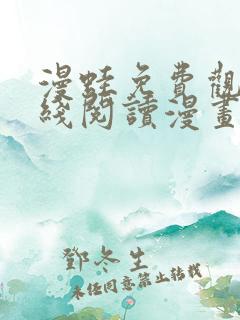 漫蛙免費觀
綫閱讀漫畫
鄧冬生
未經同意禁止轉載